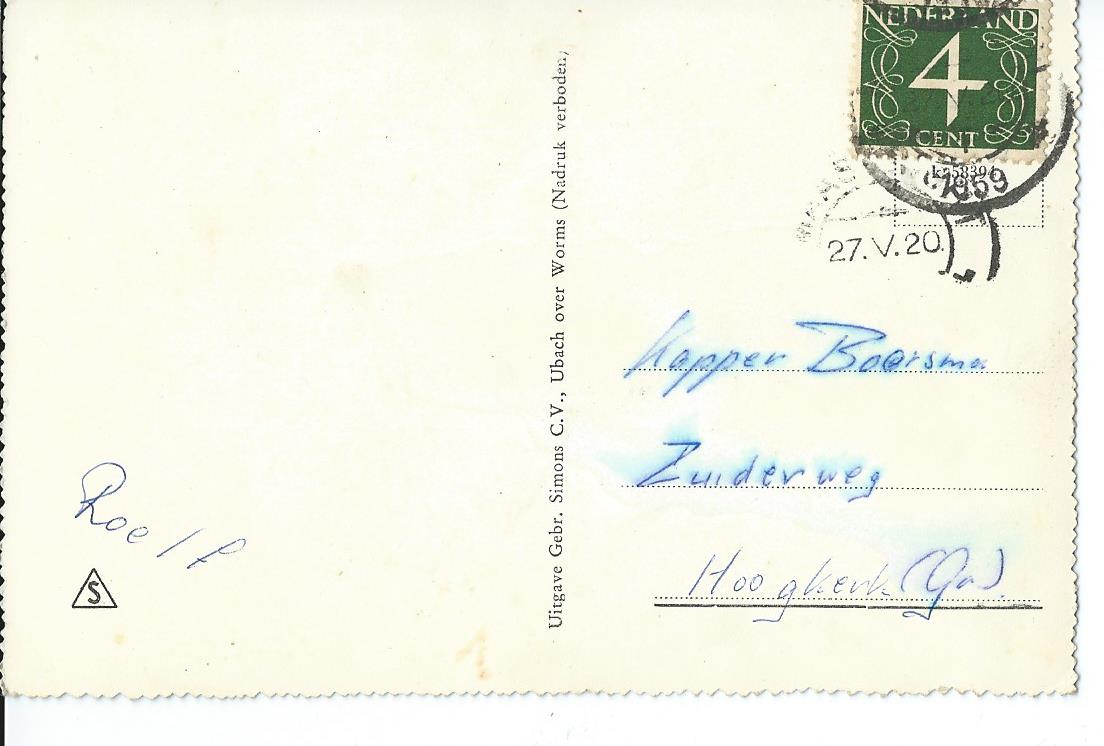 NEDERLAND
4
CENT
k 58394
1959
27.V.20.
Uitgave Gebr. Simons C.V., Ubach over Worms (Nadruk verboden)
Kapper Boersma
Zuiderweg
Hoogkerk (Gn).
Roelf
S